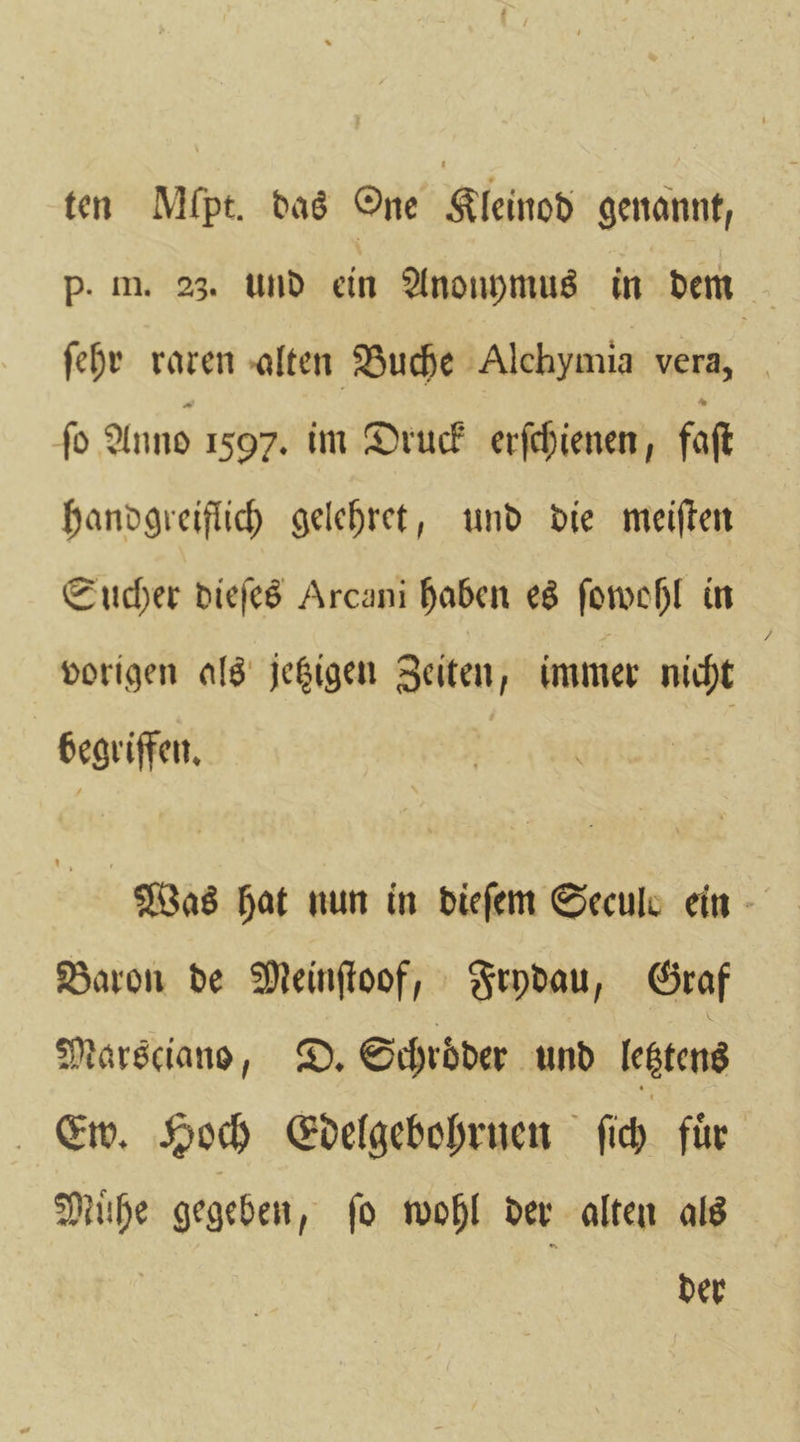 ten Mſpt. das ☉ne Kleinod genannt,
p. m. 23. und ein Anonymus in dem
ſehr raren alten Buche Alchymia vera,
ſo Anno 1597. im Druck erſchienen, faſt
handgreiflich gelehret, und die meiſten
Sucher dieſes Arcani haben es ſowohl in
vorigen als jetzigen Zeiten, immer nicht
begriffen.
Was hat nun in dieſem Secul. ein
Baron de Meinſtoof, Frydau, Graf
Marsciano, D. Schröder und letztens
Ew. Hoch Edelgebohrnen ſich für
Mühe gegeben, ſo wohl der alten als
der